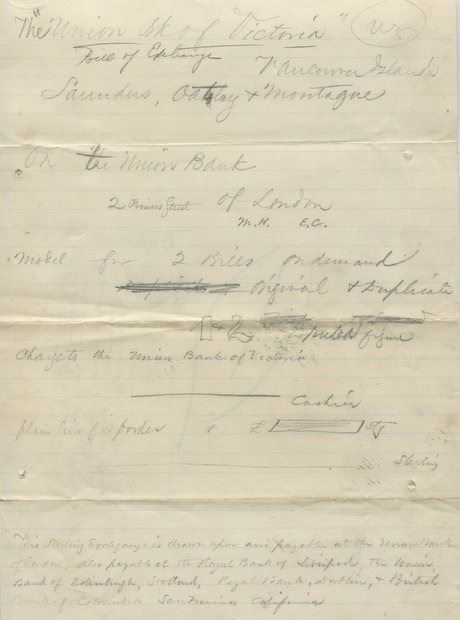 The "Union Bk of Victoria"
Bill of Exchange Vancouver Island
Saunders, Oakley & Montague
On the Union Bank
2 Princes Street of London
E.C.
Model for 2 Bills on demand
Original & Duplicate
1 + 2 figure
Charge to the Union Bank of Victoria
Cashier
plain line for border & £ Stg
Sterling
This Sterling Exchange is drawn upon and payable at the Union Bank
of London, also payable at the Royal Bank of Liverpool, The Union
Bank of Edinburgh, Scotland, Royal Bank, Dublin, & British
Bank of Columbia San Francisco California